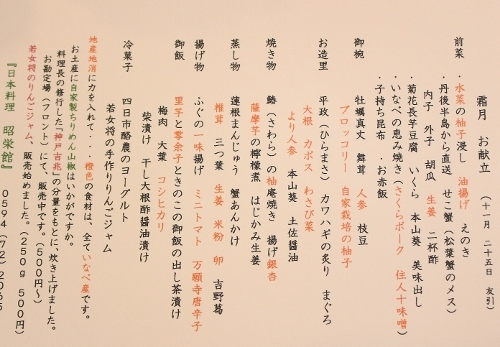 霜月 お献立 (十一月 二十五日 友引)
前菜 ・水菜の柚子浸し 油揚げ えのき
・丹後半島から直送 せこ蟹(松葉蟹のメス)
内子 外子 胡瓜 生姜 二杯酢
・菊花長芋豆腐 いくら 本山葵 美味出し
・いなべの恵み焼き(さくらポーク 住人十味噌)
・子持ち昆布 ・お赤飯
御椀 牡蠣真丈 舞茸 人参 枝豆
ブロッコリー 自家栽培の柚子
お造里 平政(ひらまさ) カワハギの炙り まぐろ
大根 カボス わさび菜
より人参 本山葵 土佐醤油
焼き物 鰆(さわら)の柚庵焼き 揚げ銀杏
薩摩芋の檸檬煮 はじかみ生姜
蒸し物 蓮根まんじゅう 蟹あんかけ
椎茸 三つ葉 生姜 米粉 卵 吉野葛
揚げ物 ふぐの一味揚げ ミニトマト 万願寺唐辛子
御飯 里芋と零余子ときのこの御飯の出し茶漬け
梅肉 大葉 コシヒカリ
柴漬け 干し大根酢醤油漬け
冷菓子 四日市酪農のヨーグルト
若女将の手作りりんごジャム
地産地消に力を入れて・・橙色の食材は、全ていなべ産です。
お土産に自家製ちりめん山椒はいかがですか。
料理長の修行した『神戸吉兆』の分量をもとに、炊き上げました。
お勘定場(フロント)にて、販売中です。(500円〜)
若女将のりんごジャム、販売始めました。(250g 500円)
『日本料理 昭栄館』 0594(72)2065